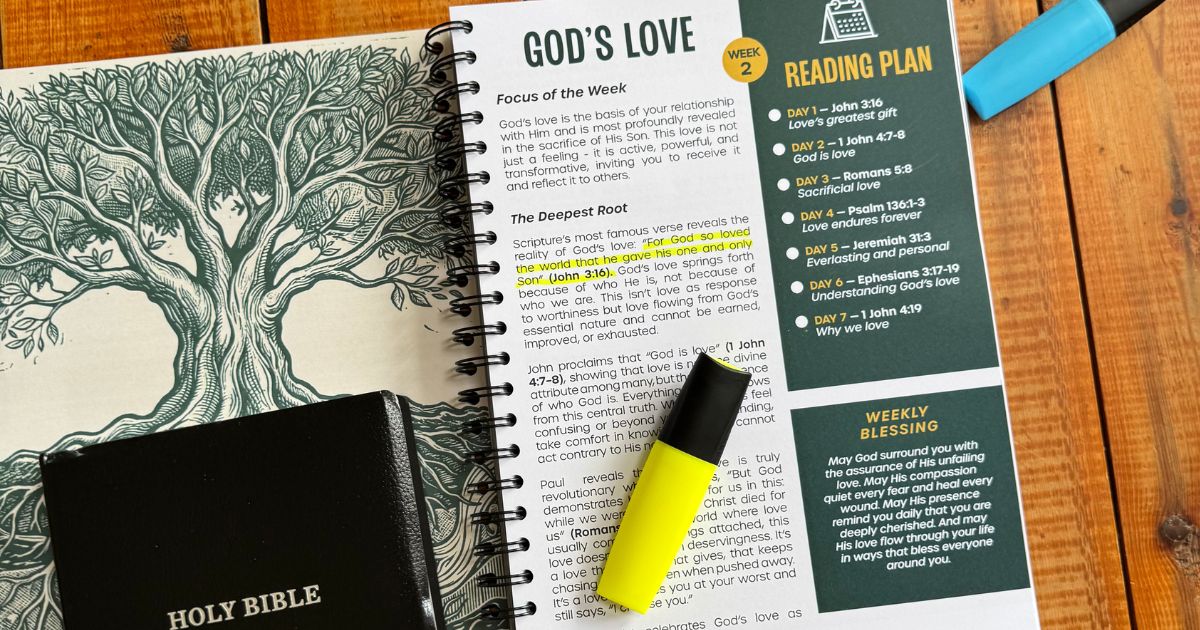 GOD'S LOVE
Focus of the Week
God's love is the basis of your relationship
with Him and is most profoundly revealed
in the sacrifice of His Son. This love is not
just a feeling - it is active, powerful, and
transformative, inviting you to receive it
and reflect it to others.
The Deepest Root
Scripture's most famous verse reveals the
reality of God's love: "For God so loved
the world that he gave his one and only
Son" (John 3:16). God's love springs forth
because of who He is, not because of
who we are. This isn't love as response
to worthiness but love flowing from God's
essential nature and cannot be earned,
improved, or exhausted.
John proclaims that "God is love" (1 John
4:7-8), showing that love is divine
attribute among many, but
of who God is. Everything
from this central truth. feel
confusing or beyond
take comfort in cannot
act contrary to His
Paul reveals is truly
revolutionary "But God
demonstrates for us in this:
while we were Christ died for
us" world where love
usually attached, this
love deservingness. It's
a love that gives, that keeps
chasing when pushed away.
It's a you at your worst and
still says, you."
celebrates God's love as
WEEK
2
READING PLAN
DAY 1 – John 3:16
Love's greatest gift
DAY 2 – 1 John 4:7-8
God is love
DAY 3 – Romans 5:8
Sacrificial love
DAY 4 – Psalm 136:1-3
Love endures forever
DAY 5 – Jeremiah 31:3
Everlasting and personal
DAY 6 – Ephesians 3:17-19
Understanding God's love
DAY 7 – 1 John 4:19
Why we love
WEEKLY
BLESSING
May God surround you with
the assurance of His unfailing
love. May His compassion
quiet every fear and heal every
wound. May His presence
remind you daily that you are
deeply cherished. And may
His love flow through your life
in ways that bless everyone
around you.
HOLY BIBLE